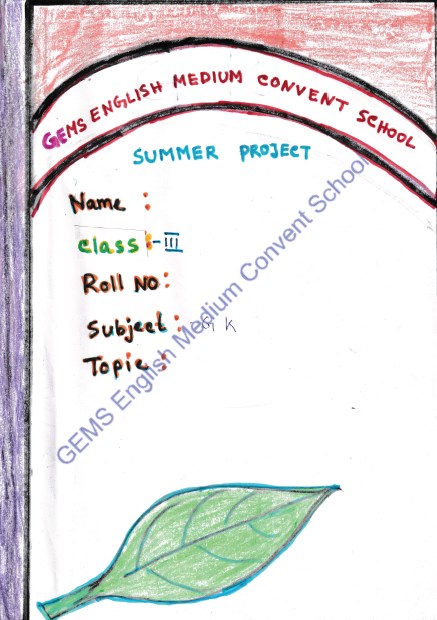 GEMS ENGLISH MEDIUM CONVENT SCHOOL
SUMMER PROJECT
Name :
class :- III
Roll NO :
Subject : GK
Topic :
GEMS English Medium Convent School